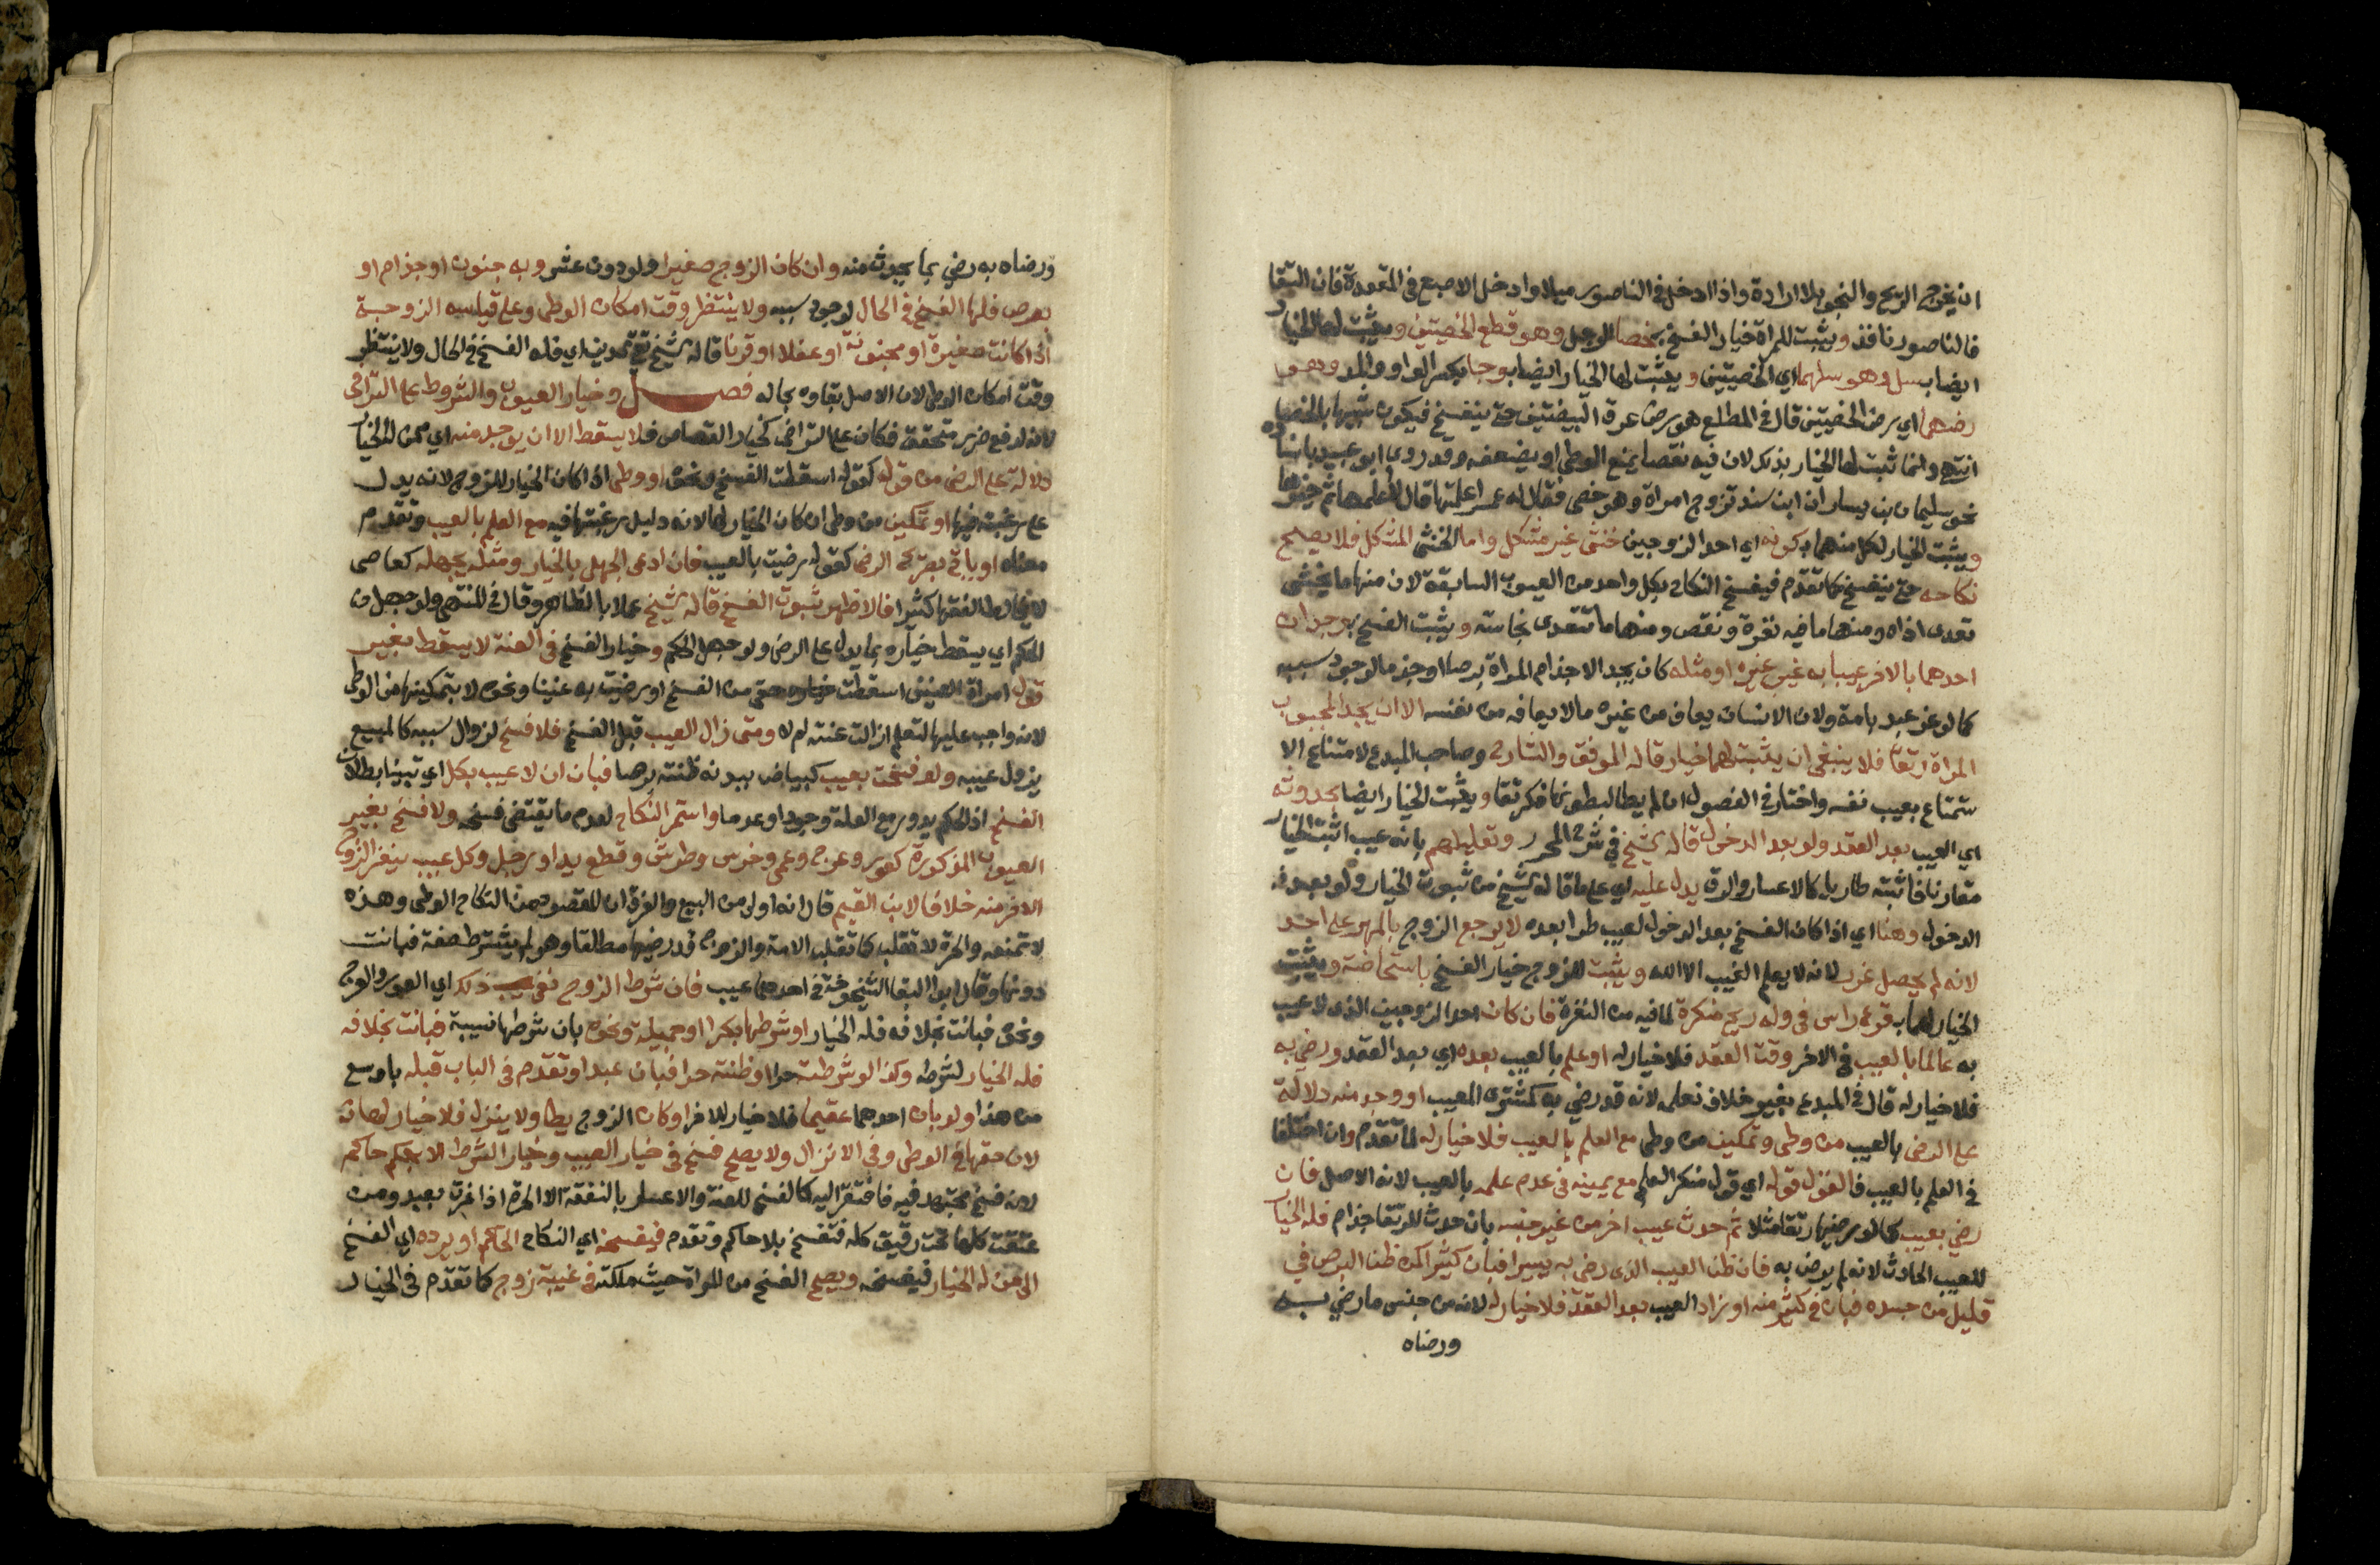 ان يخرج الريح والنجو بلا ارادة واذا ادخل في الناصور ميلا وادخل الاصبع في المقعدة فان التقيا
فالناصور نافذ ويثبت للمراة خيار الفسخ بخصا الرجل وهو قطع الخصيتين ويثبت لها الخيار
ايضا بسل وهو سلهما اي الخصيتين ويثبت لها الخيار ايضا بوجا بكسر الواو والمد وهو
رضهما اي رض الخصيتين قال في المطلع هو رض عرق البيضتين حتى ينفسخ فيكون شبيها بالخصا
انتهى وانما ثبت لها الخيار بذلك لان فيه نقصا يمنع الوطي او يضعفه وقد روى ابو عبيد باسناده
نحو سليمان بن يسار ان ابن سند تزوج امراة وهو خصي فقال له عمر اعلمتها قال لا قال اعلمها ثم خيرها
ويثبت الخيار لكل منهما بكونه اي احد الزوجين خنثى غير مشكل واما الخنثى المشكل فلا يصح
نكاحه حتى يتضح كما تقدم فيفسخ النكاح بكل واحد من العيوب السابقة لان منها ما يخشى
تعدى اذاه ومنها ما فيه نفرة ونقص ومنها ما تتعدى نجاسته ويثبت الفسخ بوجدان
احدهما بالاخر عيبا به غير عيبه او مثله كان يجد الاجذام المراة برصا او جذما لوجود سببه
كما لو غر عبد بامة ولان الانسان يعاف من غيره مالا يعافه من نفسه الا ان يجد المجبوب
المراة رتقا فلا ينبغي ان يثبت لهما خيار قاله الموفق والشارح وصاحب المبدع لامتناع الا
ستمتاع بعيب نفسه واختار في الفصول ان لم يطا لبطو نها فكرتقا ويثبت الخيار ايضا بحدوثه
اي العيب بعد العقد ولو بعد الدخول قاله الشيخ في شرح المحرر وتعليلهم بانه عيب اثبت الخيار
مقارنا فاثبته طاريا كالاعسار والرق يدل عليه اي على ما قاله الشيخ من ثبوت الخيار ولو بعد
الدخول وهنا اي اذا كان الفسخ بعد الدخول لعيب طرا بعده لا يرجع الزوج بالمهر على احد
لانه لم يحصل غرر لانه لا يعلم الغيب الا الله ويثبت للزوج خيار الفسخ باستحاضة ويثبت
الخيار لهما بقرع راس في وله ريح منكرة لما فيه من النفرة فان كان احد الزوجين الذي لا عيب
به عالما بالعيب في الاخر وقت العقد فلا خيار له او علم بالعيب بعده اي بعد العقد ورضي به
فلا خيار له قال في المبدع بغير خلاف نعلمه لانه قد رضي به كمشترى المعيب او وجد منه دلالة
على الرضى بالعيب من وطى وتمكين من وطى مع العلم بالعيب فلا خيار له لما تقدم وان اختلفا
في العلم بالعيب فالقول قوله اي قول منكر العلم مع يمينه في عدم علمه بالعيب لانه الاصل فان
رضي بعيب كما لو رضيها رتقا مثلا ثم حدث عيب اخر من غير جنسه بان حدث للرتقا جذام فله الخيار
للعيب الحادث لانه لم يرض به فان ظن العيب الذي رضي به يسيرا فبان كثيرا كمن ظن البرص في
قليل من جسده فبان في كثير منه او زاد العيب بعد العقد فلا خيار له لانه من جنس ما رضي به
ورضاه
ورضاه به رضي بما يحدث منه وان كان الزوج صغيرا ولو دون عشر وبه جنون او جذام او
برص فلها الفسخ في الحال لوجود سببه ولا ينتظر وقت امكان الوطى وعلى قياسه الزوجة
اذا كانت صغيرة او مجنونة او عفلا او قرنا قاله الشيخ تقي الدين اي فله الفسخ في الحال ولا ينتظر
وقت امكان الوطى لان الاصل بقاوه بحاله فصل وخيار العيوب والشروط على التراخى
لانه لدفع ضرر متحقق فكان على التراخى كخيار القصاص فلا يسقط الا ان يوجد منه اي ممن له الخيار
دلالة على الرضى من قول كقوله اسقطت الفسخ ونحوه او وطى اذا كان الخيار للزوج لانه يدل
على رغبته فيها او تمكين من وطى ان كان الخيار لها لانه دليل رغبتها فيه مع العلم بالعيب وتقدم
معناه او ياتي بصريح الرضا كقوله رضيت بالعيب فان ادعى الجهل بالخيار ومثله يجهله كعامي
لا يخالط الفقها كثيرا فالاظهر ثبوت الفسخ قاله الشيخ عملا بالظاهر وقال في المنتهى ولو جهل
الحكم اي يسقط خياره بما يدل على الرضى ولو جهل الحكم وخيار الفسخ في العنة لا يسقط بغير
قول امراة العنين اسقطت حقى من الفسخ او رضيت به عنينا ونحوه لا بتمكينها من الوطى
لانه واجب عليها لتعلم ازالت عنته ام لا ومتى زال العيب قبل الفسخ فلا فسخ لزوال سببه كالمبيع
يزول عيبه ولو فسخت بعيب كبياض ببدنه ظنته برصا فبان ان لا عيب بطل اي تبينا بطلان
الفسخ اذ الحكم يدور مع العلة وجودا وعدما واستمر النكاح لعدم ما يقتضى فسخه ولا فسخ بغير
العيوب المذكورة كعور وعرج وعمى وخرس وطرش وقطع يد او رجل وكل عيب ينفر الزوج
الاخر منه خلافا لابن القيم قال انه اولى من البيع والفرق ان المقصود من النكاح الوطى وهذه
لا تمنعه والحرة لا تقلب كما تقلب الامة والزوج قد رضيها مطلقا وهو لم يشترط صفة فبانت
دونها وقال ابو البقا الشيخوخة في احدهما عيب فان شرط الزوج نفي ذلك اي العور والعرج
ونحوه فبانت بخلافه فله الخيار او شرطها بكرا او جميلة ونحوه بان شرطها نسيبة فبانت بخلافه
فله الخيار لشرطه وكذا لو شرطت حرا او ظنته حرا فبان عبدا وتقدم في الباب قبله باوسع
من هذا ولو بان احدهما عقيما فلا خيار للاخر او كان الزوج يطا ولا ينزل فلا خيار لها
لان حقها في الوطى وفي الانزال ولا يصح فسخ في خيار العيب وخيار الشرط الا بحكم حاكم
لانه فسخ مجتهد فيه فافتقر اليه كالفسخ للعنة والاعسار بالنفقة الا الحرة اذا غرت بعبد ومن
عتقت كلها تحت رقيق كله فتفسخ بلا حاكم وتقدم فيفسخه اي النكاح الحاكم او يرده اي الفسخ
الى من له الخيار فيفسخه ويصح الفسخ من المراة حيث ملكته في غيبة زوج كما تقدم في الخيار